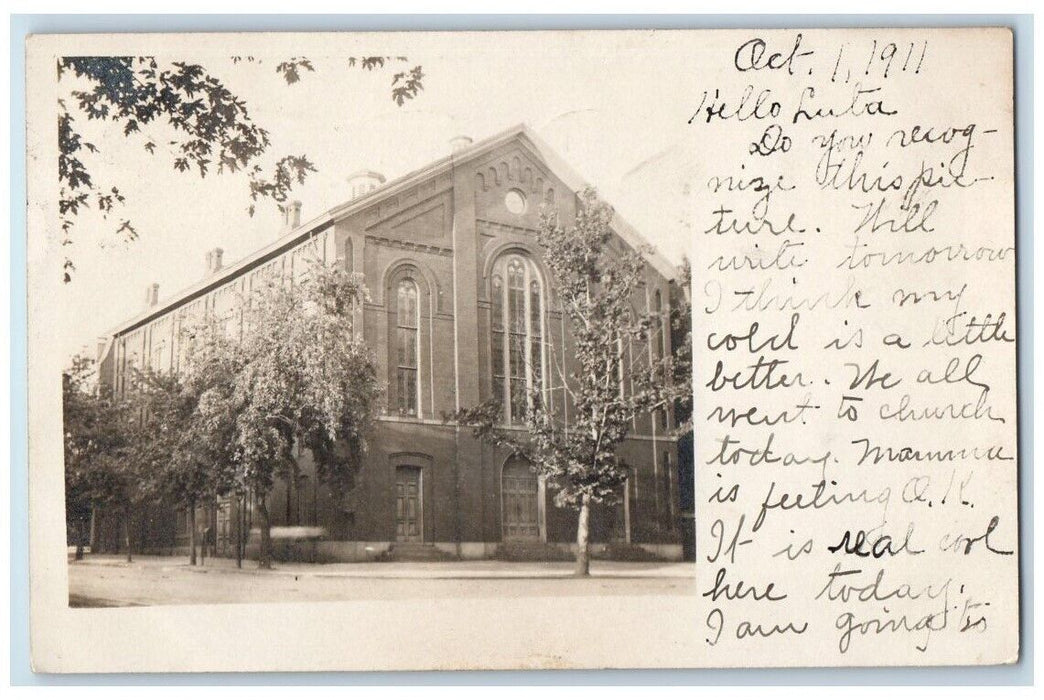 Oct. 1, 1911
Hello Luta
Do you recog-
nize this pic-
ture. Will
write tomorrow
I think my
cold is a little
better. We all
went to church
today. Mamma
is feeling O.K.
It is real cool
here today.
I am going to